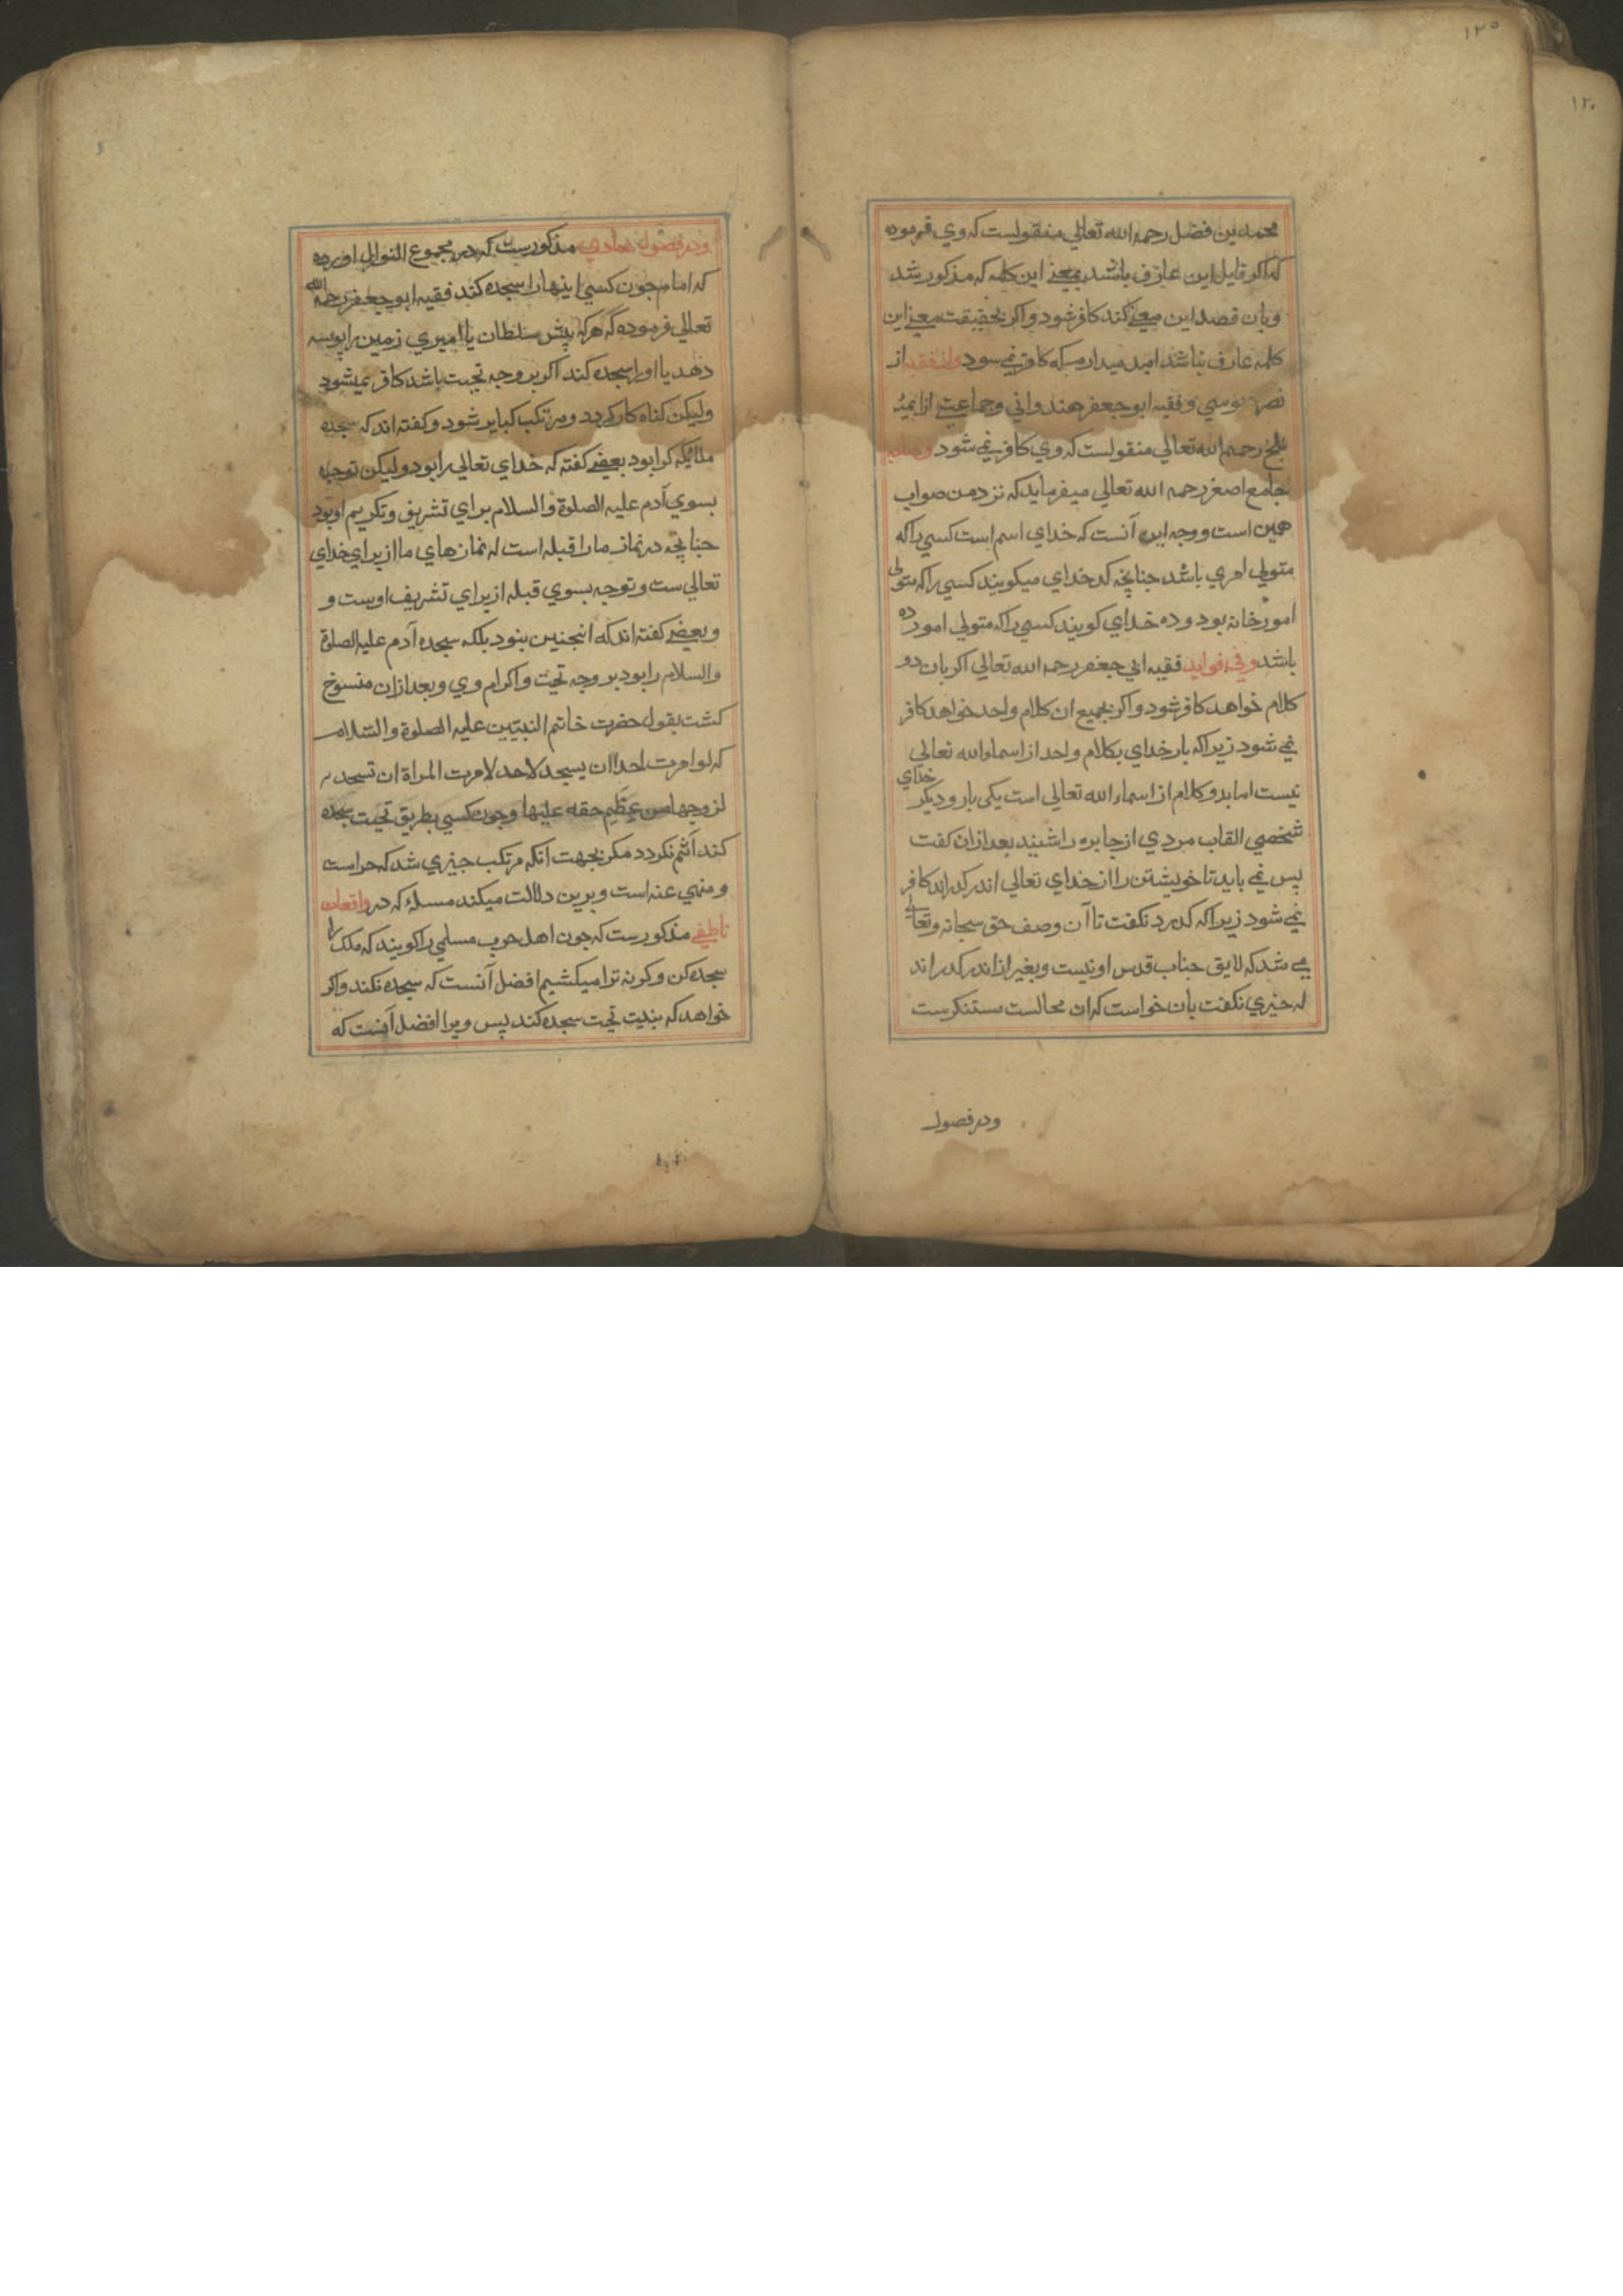 ١٢٥
١٢٠
محمد بن فضل رحمه الله تعالي منقولست که وي فرموده
که اکر قایل این عارف باشد بمعنے این کلمه که مذکور شد
وبان قصد این معنے کند کافر شود واکر بحقیقت معنے این
کلمه عارف نباشد امید میدارم که کافر نمے شود واز فقیه از
نصر بوسي وفقیه ابو جعفر هندواني وجماعتے از ایمهٔ
بلخ رحمهم الله تعالي منقولست که وي کافر نمے شود
جامع اصغر رحمه الله تعالي میفرماید که نزد من صواب
همین است ووجه این آنست که خداي اسم است کسي را که
متولي امري باشد جنانچه کدخداي میکویند کسي را که متولي
امور خانه بود وده خداي کویند کسي را که متولي امور ده
باشد وفي فواید فقیه ابي جعفر رحمه الله تعالي اکر بان دو
کلام خواهد کافر شود واکر بجمیع ان کلام واحد خواهد کافر
نمے شود زیرا که بار خداي بکلام واحد از اسماء الله تعالي
نیست اما بدو کلام از اسماء الله تعالي است یکی بار ودیکر خداي
شخصي القاب مردي از جابره را شیند بعد از ان کفت
پس نمے باید تا خویشتن را از خداي تعالي اندر کدراند کافر
نمے شود زیرا که کدرد نکفت تا آن وصف حق سبحانه وتعالے
مے شد که لایق جناب قدس او نیست وبغیر از اندر کدراند
له خیري نکفت بان خواست که ان محالست مستنکرست
ودر فصول
ودر فصول عمادي مذکورست که در مجموع النوازل اورده
که امام جون کسي اینها را سجده کند فقیه ابو جعفر رحمه الله
تعالي فرموده که هر که پیش سلطان یا امیري زمین را بوسه
دهد یا او را سجده کند اکر بر وجه تحیت باشد کافر نمیشود
ولیکن کناه کار کردد ومرتکب کبایر شود وکفته اند که سجده
ملائکه کرا بود بعضے کفته که خداي تعالي را بود ولیکن توجه
بسوي آدم علیه الصلوة والسلام براي تشریف وتکریم او بود
جنانچه در نماز ما را قبله است له نمازهاي ما از براي خداي
تعالي ست وتوجه بسوي قبله از براي تشریف اوست و
وبعضے کفته اند که انجنین نبود بلکه سجده آدم علیه الصلوة
والسلام را بود بر وجه تحیت واکرام وي وبعد ازان منسوخ
کشت بقول حضرت خاتم النبیین علیه الصلوة والسلام
که لو امرت احدا ان یسجد لاحد لامرت المراة ان تسجد
لزوجها من عظیم حقه علیها وجون کسي بطریق تحیت سجده
کند آثم نکردد مکر بجهت آنکه مرتکب جیزي شد که حرامست
ومنهي عنه است وبرین دلالت میکند مسلهٔ که در واقعات
ناطفے مذکورست که جون اهل حرب مسلمي را کویند که ملک را
سجده کن وکرنه ترا میکشیم افضل آنست که سجده نکند واکر
خواهد که بنیت تحیت سجده کند پس ویرا افضل آنست که